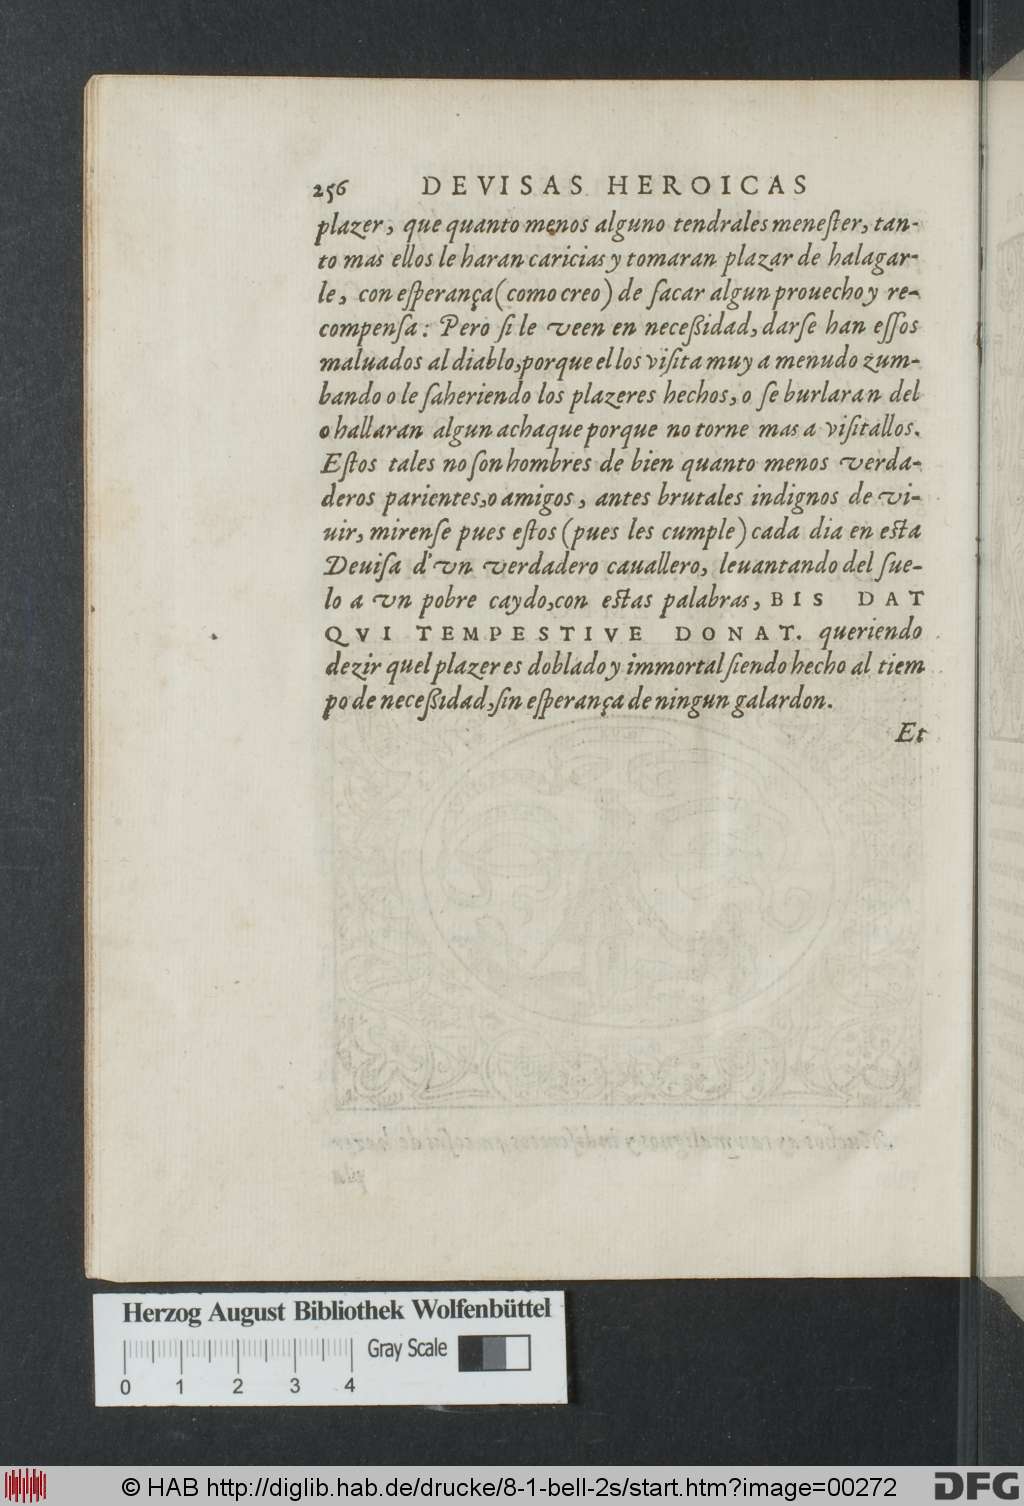 256 DEVISAS HEROICAS
plazer, que quanto menos alguno tendrales meneſter, tan-
to mas ellos le haran caricias y tomaran plazar de halagar-
le, con eſperança (como creo) de ſacar algun prouecho y re-
compenſa: Pero ſi le veen en neceßidad, darſe han eſſos
maluados al diablo, porque ellos viſita muy a menudo zum-
bando o le ſaheriendo los plazeres hechos, o ſe burlaran del
o hallaran algun achaque porque no torne mas a viſitallos.
Eſtos tales no ſon hombres de bien quanto menos verda-
deros parientes, o amigos, antes brutales indignos de vi-
uir, mirenſe pues eſtos (pues les cumple) cada dia en eſta
Deuiſa d'vn verdadero cauallero, leuantando del ſue-
lo a vn pobre caydo, con eſtas palabras, BIS DAT
QVI TEMPESTIVE DONAT. queriendo
dezir quel plazer es doblado y immortal ſiendo hecho al tiem
po de neceßidad, ſin eſperança de ningun galardon.
Et
Herzog August Bibliothek Wolfenbüttel
Gray Scale
0 1 2 3 4
© HAB http://diglib.hab.de/drucke/8-1-bell-2s/start.htm?image=00272
DFG